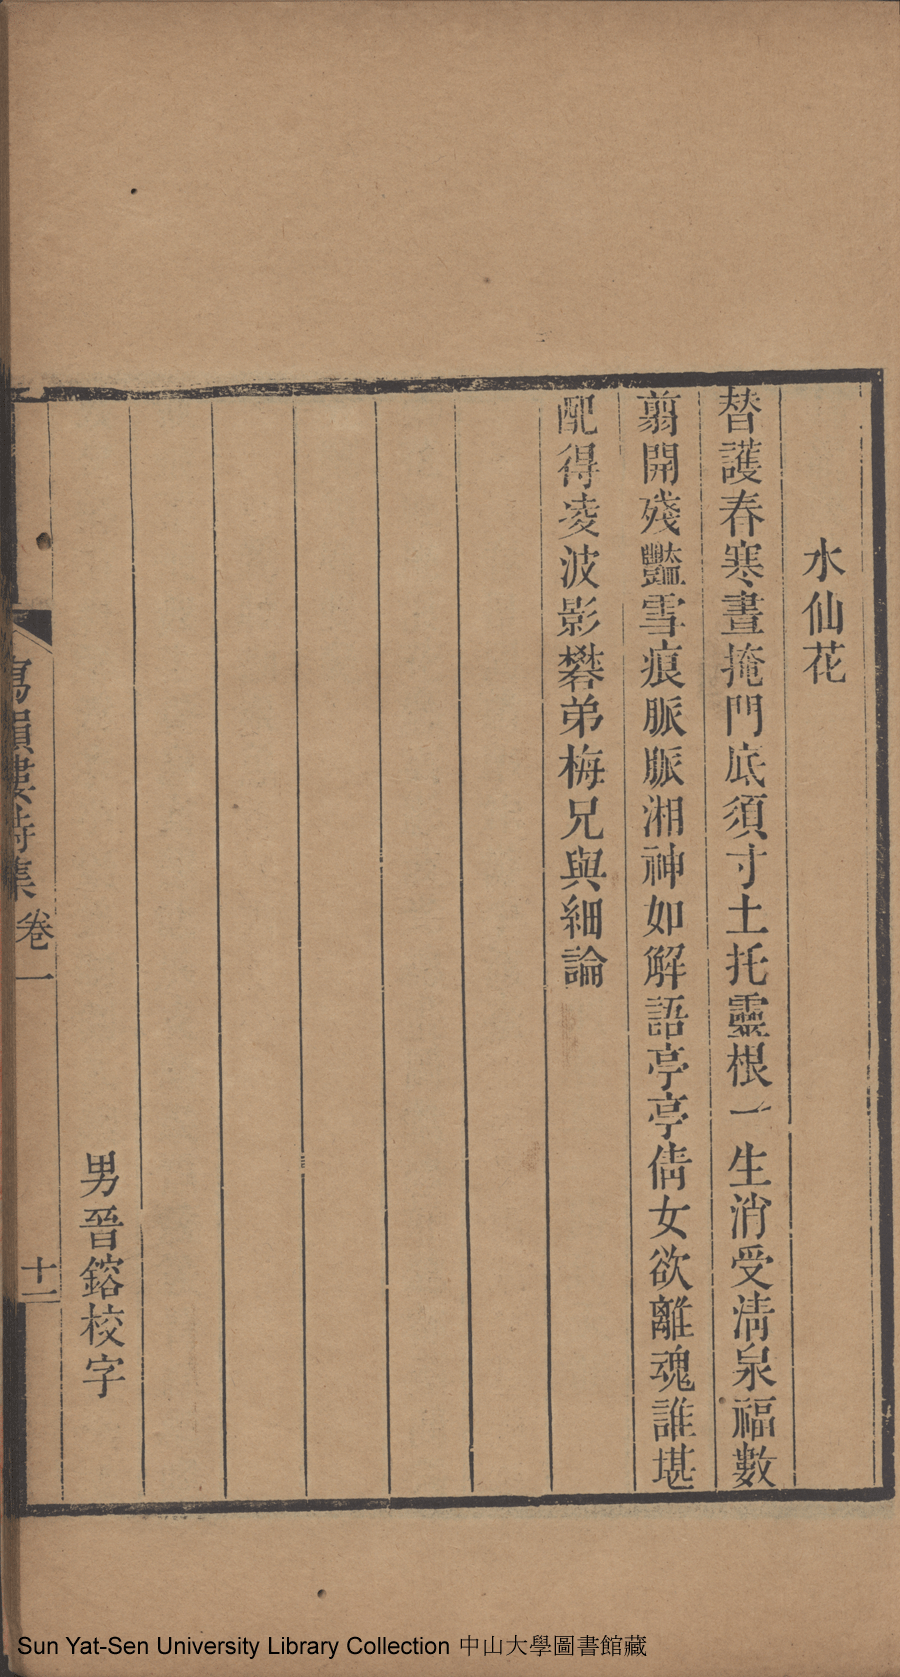 水仙花
替護春寒晝掩門底須寸土托靈根一生消受清泉福數
翦開殘豔雪痕脈脈湘神如解語亭亭倩女欲離魂誰堪
配得凌波影礬弟梅兄與細論
男晉鎔校字
寫韻樓詩集 卷一 十二
Sun Yat-Sen University Library Collection 中山大學圖書館藏